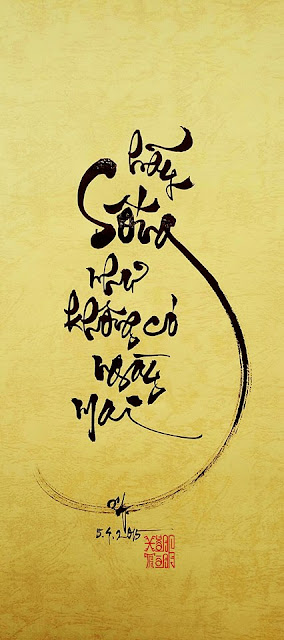 hãy
Sống
như
không có
ngày
mai
5.4.2015